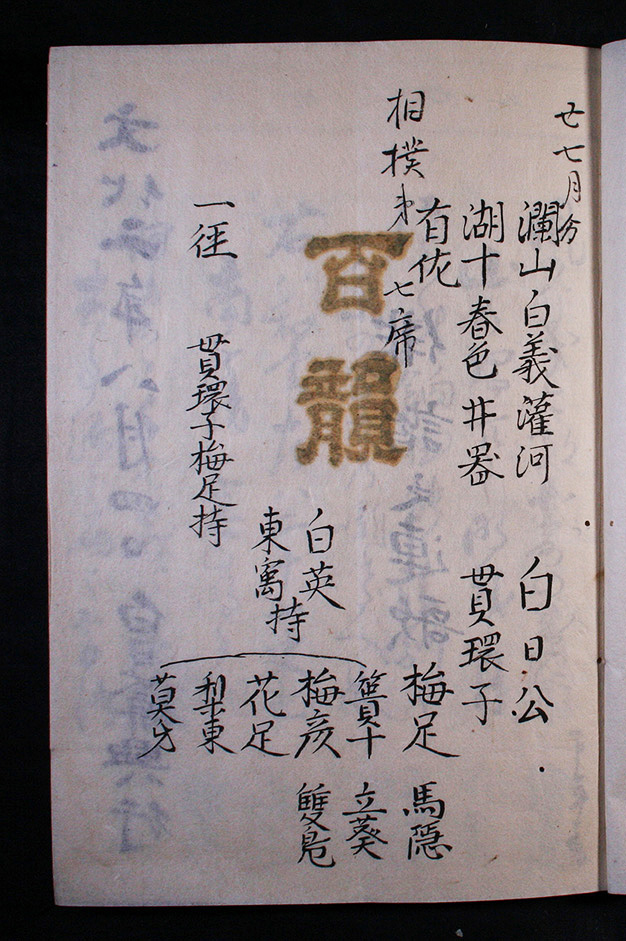 廿七月分
瀾山 白義 灌河 白日公
湖十 春色 井器 貫環子
有佐
相撲 七席
百韻
梅足 馬隠
簣十 立葵
梅彦 雙鳬
花足
梨東
莫牙
白英
東寓 持
一徃 貫環子 梅足 持